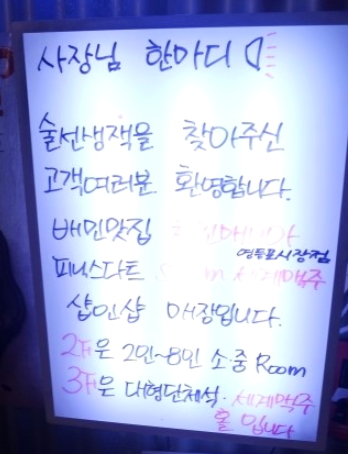 사장님 한마디
술선생잭을 찾아주신
고객여러분 환영합니다.
배민맛집
영등포시장점
피닉스다트 세계맥주
샵인샵 매장입니다.
2F은 2인~8인 소·중 Room
3F은 대형단체석·세계맥주
홀 입니다